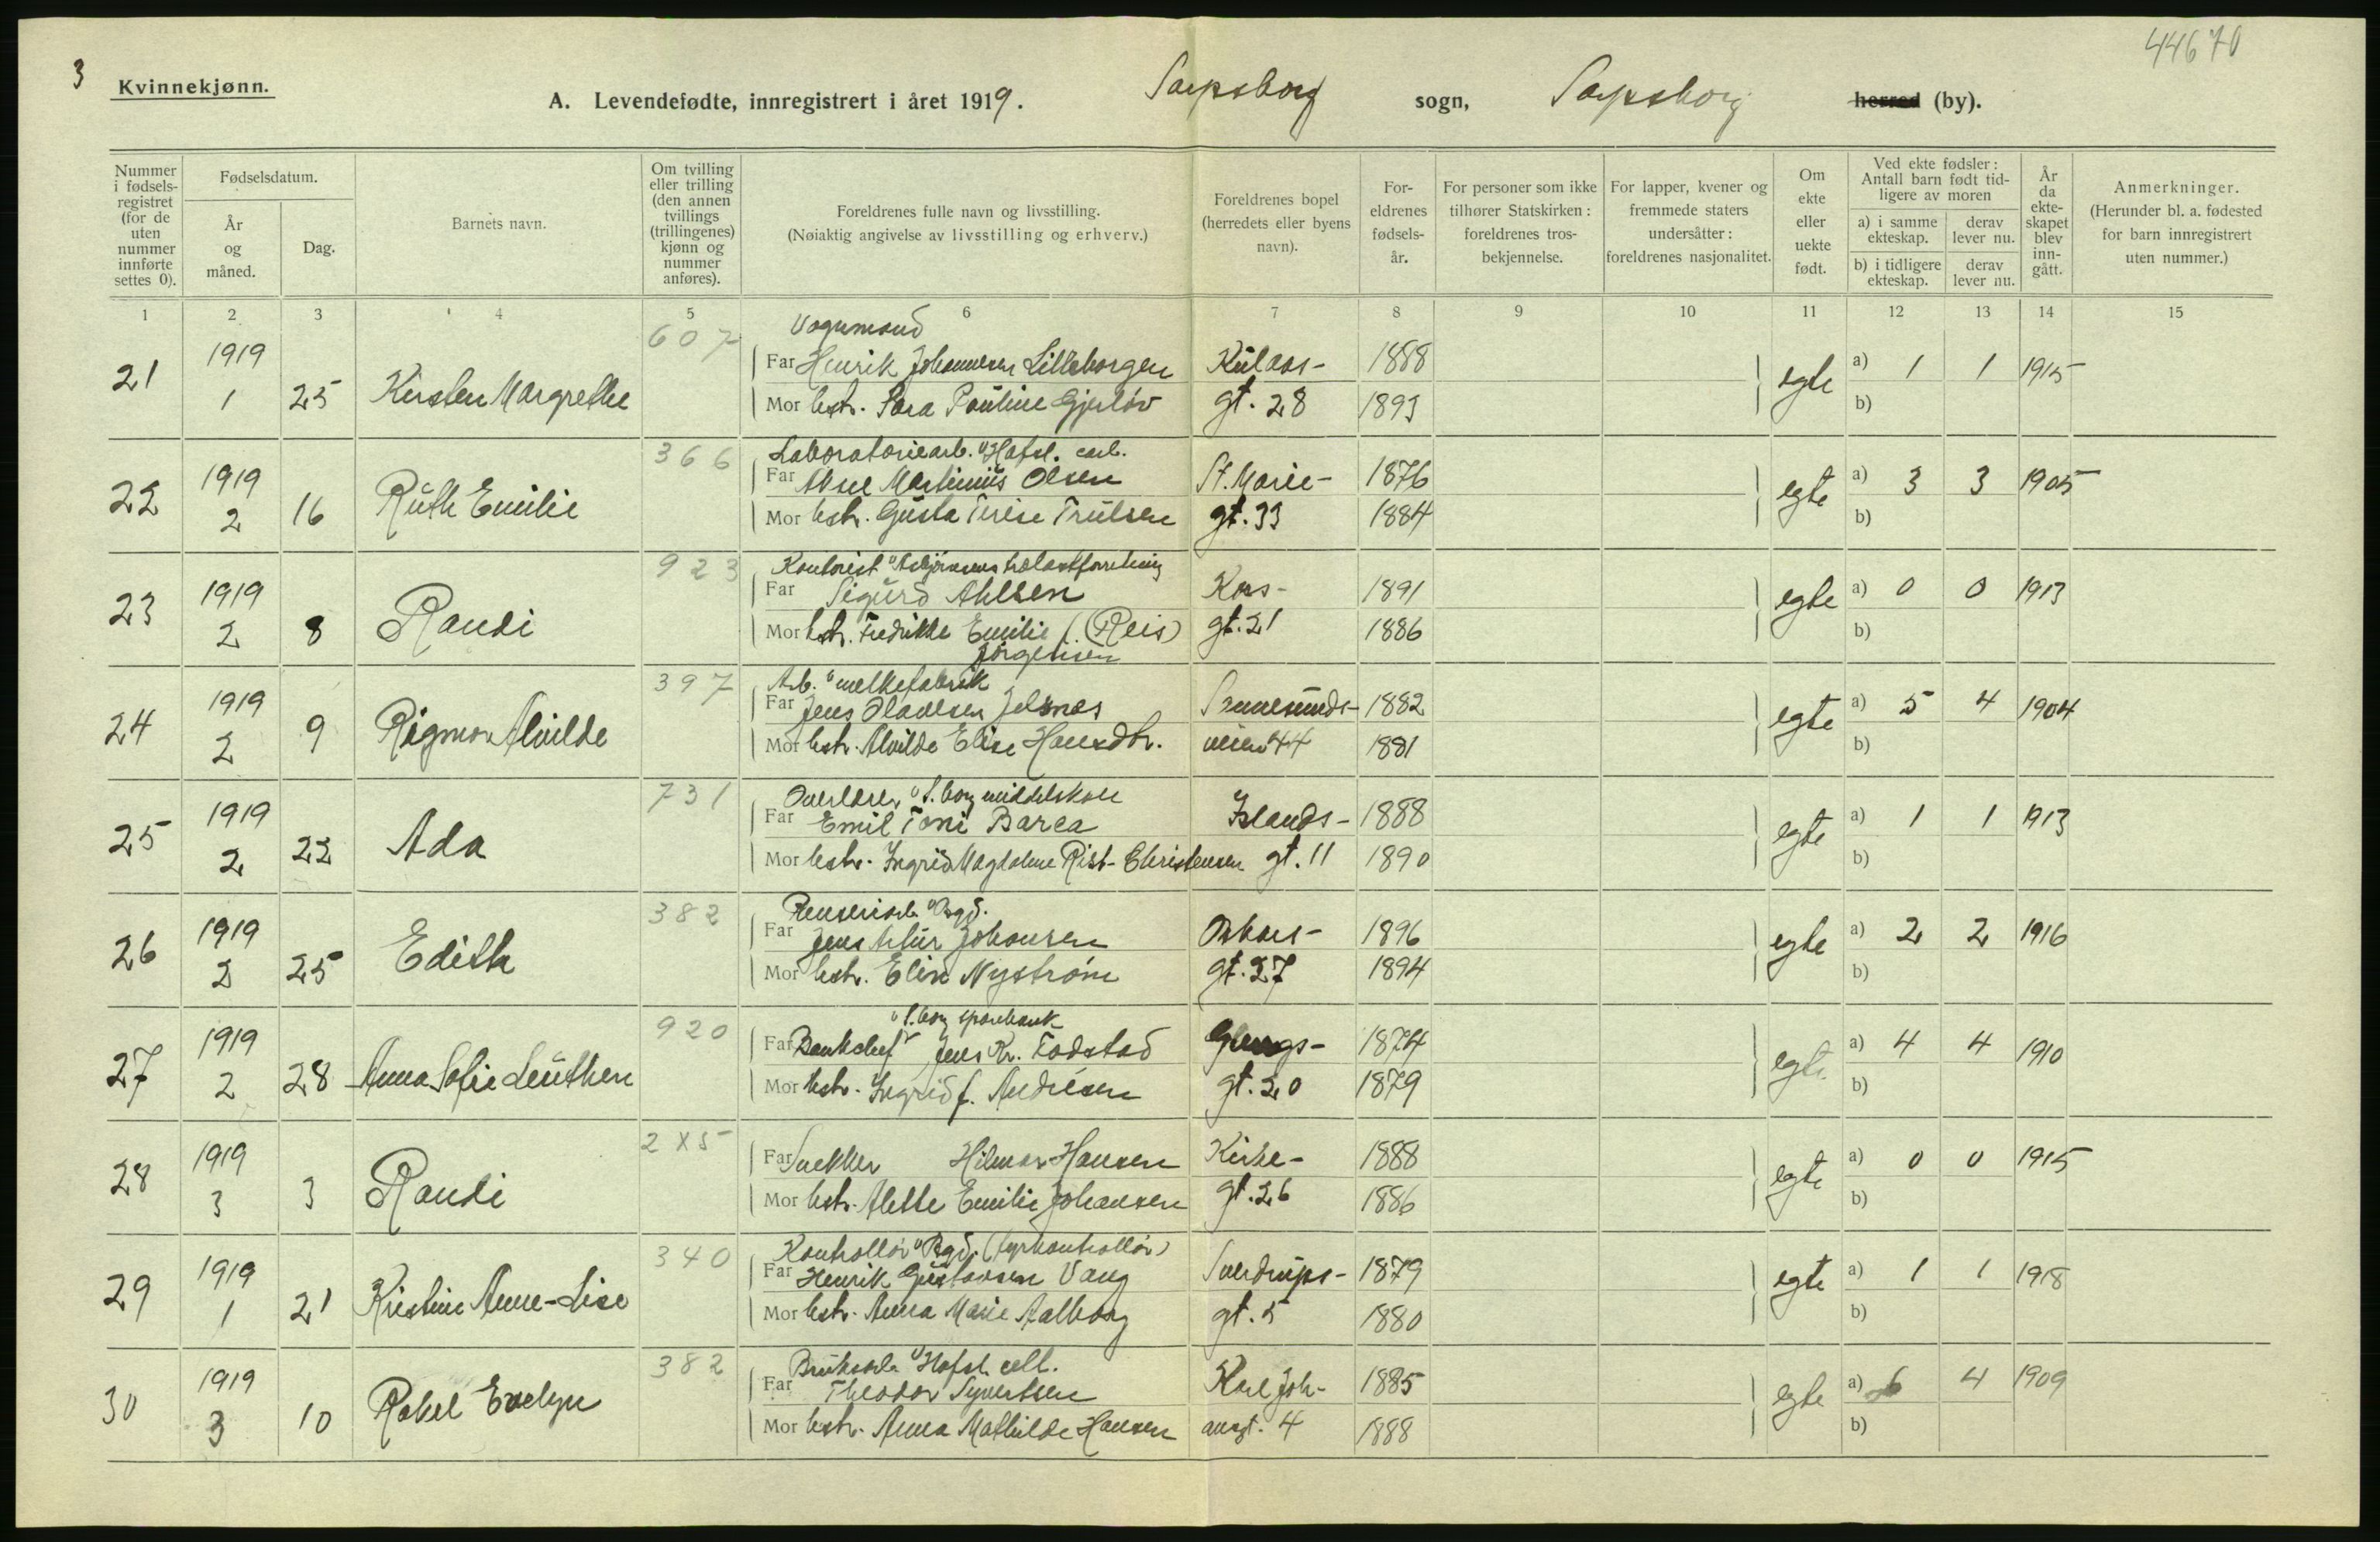 3
Kvinnekjønn.
44670
A. Levendefødte, innregistrert i året 1919. Sarpsborg sogn, Sarpsborg herred (by).
Nummer i fødselsregistret (for de uten nummer innførte settes 0).
Fødselsdatum.
År og måned.
Dag.
Barnets navn.
Om tvilling eller trilling (den annen tvillings (trillingenes) kjønn og nummer anføres).
Foreldrenes fulle navn og livsstilling.
(Nøiaktig angivelse av livsstilling og erhverv.)
Foreldrenes bopel (herredets eller byens navn).
Foreldrenes fødselsår.
For personer som ikke tilhører Statskirken: foreldrenes trosbekjennelse.
For lapper, kvener og fremmede staters undersåtter: foreldrenes nasjonalitet.
Om ekte eller uekte født.
Ved ekte fødsler: Antall barn født tidligere av moren
a) i samme ekteskap. derav lever nu.
b) i tidligere ekteskap. derav lever nu.
År da ekteskapet blev inngått.
Anmerkninger.
(Herunder bl. a. fødested for barn innregistrert uten nummer.)
1 2 3 4 5 6 7 8 9 10 11 12 13 14 15
607 Vognmand
21 1919 Far Henrik Johannesen Lilleborgen Kulaas- 1888 egte a) 1 1 1915
1 25 Kirsten Margrethe Mor hstr. Sara Pauline Gjerløv gt. 28 1893 b)
366 Laboratoriearb. v Hafsl. carb.
22 1919 Far Aksel Martinius Olsen St. Marie- 1876 egte a) 3 3 1905
2 16 Ruth Emilie Mor hstr. Gusta Terese Trulsen gt. 33 1884 b)
923 Kontorist v Asbjørnsens trælastforretning
23 1919 Far Sigurd Ahlsen Kors- 1891 egte a) 0 0 1913
2 8 Randi Mor hstr. Fredrikke Emilie (f. Reis) gt. 21 1886 b)
Jørgensen
397 Arb. v melkefabrik
24 1919 Far Jens Olavesen Jelsnes Sannesunds- 1882 egte a) 5 4 1904
2 9 Rigmor Alvilde Mor hstr. Alvilde Elise Hansdtr. veien 44 1881 b)
731 Overlærer v S.borg middelskole
25 1919 Far Emil Toni Barca Islands- 1888 egte a) 1 1 1913
2 22 Ada Mor hstr. Ingrid Magdalene Rist-Christensen gt. 11 1890 b)
382 Renseriarb. v Brgd.
26 1919 Far Jens Artur Johansen Oskars- 1896 egte a) 2 2 1916
2 25 Edith Mor hstr. Elin Nystrøm gt. 27 1894 b)
920 v S.borg sparebank
27 1919 Far Bankchef Jens Kr. Fodstad Glengs- 1874 egte a) 4 4 1910
2 28 Anna Sofie Leuthen Mor hstr. Ingrid f. Andresen gt. 20 1879 b)
2X5
28 1919 Far Snekker Hilmar Hansen Kirke- 1888 egte a) 0 0 1915
3 3 Randi Mor hstr. Alette Emilie Johansen gt. 26 1886 b)
340 Kontrollør v Brgd. (fyrkontrollør)
29 1919 Far Henrik Gustavsen Vang Sverdrups- 1879 egte a) 1 1 1918
1 21 Kirstine Anne-Lise Mor hstr. Anna Marie Aalborg gt. 5 1880 b)
382 Bruksarb. v Hafsl. cell.
30 1919 Far Theodor Syvertsen Karl Joh- 1885 egte a) 6 4 1909
3 10 Rakel Evelyn Mor hstr. Anna Mathilde Hansen ansgt. 4 1888 b)